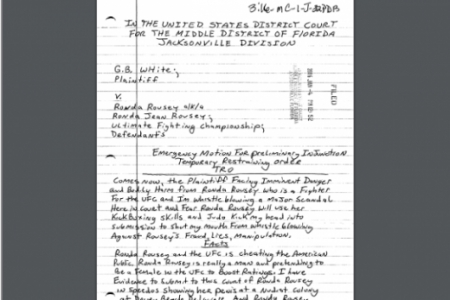 3:16-mc-1-J-32PDB
IN THE UNITED STATES DISTRICT COURT
FOR THE MIDDLE DISTRICT OF FLORIDA
JACKSONVILLE DIVISION
G.B. White;
Plaintiff
V.
Ronda Rousey a/k/a
Ronda Jean Rousey;
Ultimate Fighting Championship;
Defendants
FILED
Emergency Motion For preliminary Injunction
Temporary Restraining order
TRO
Comes now, the Plaintiff Facing Imminent Danger
and Bodily Harm From Ronda Rousey who is a Fighter
For the UFC and I'm whistle blowing a Major Scandal
Here in court and Fear Ronda Rousey will use her
KickBoxing skills and Judo Kick my head into
submission to Shut my Mouth From whistle blowing
Against Rousey's Fraud, Lies, Manipulation.
Facts
Ronda Rousey and the UFC is cheating the American
Public. Ronda Rousey is really a man and pretending to
Be a Female in the UFC to Boost Ratings. I have
Evidence to Submit to this court of Ronda Rousey
in speedos showing her penis at a Nudist Colony